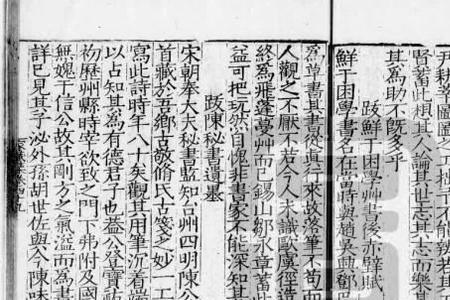 尹耕莘圖圖之工
賢蓄此頗其人論其世志其志而樂
其為助不旣多乎
跋鮮于困學草書後赤壁賦
鮮于困學書名在當時與趙吳興鄧
為草書其書從真行來故落筆不苟而
人觀之不厭不若今人未識歐虞徑
終為飛蓬蔓草而已錫山鄒永章蓄此
益可把玩然自愧非書家不能深知其
跋陳秘書遺墨
宋朝奉大夫秘書監知台州四明陳公
首藏於吾鄉古敬脩氏古篋之妙一工
寫此詩時年八十矣觀其用筆沉着
以占知其為有德君子也葢公登寶
初歷州縣時宰欲致之門下弗附及國
無媿于信公故其剛方之氣溢而為書
詳已見其子泌外孫胡世佐與今陳